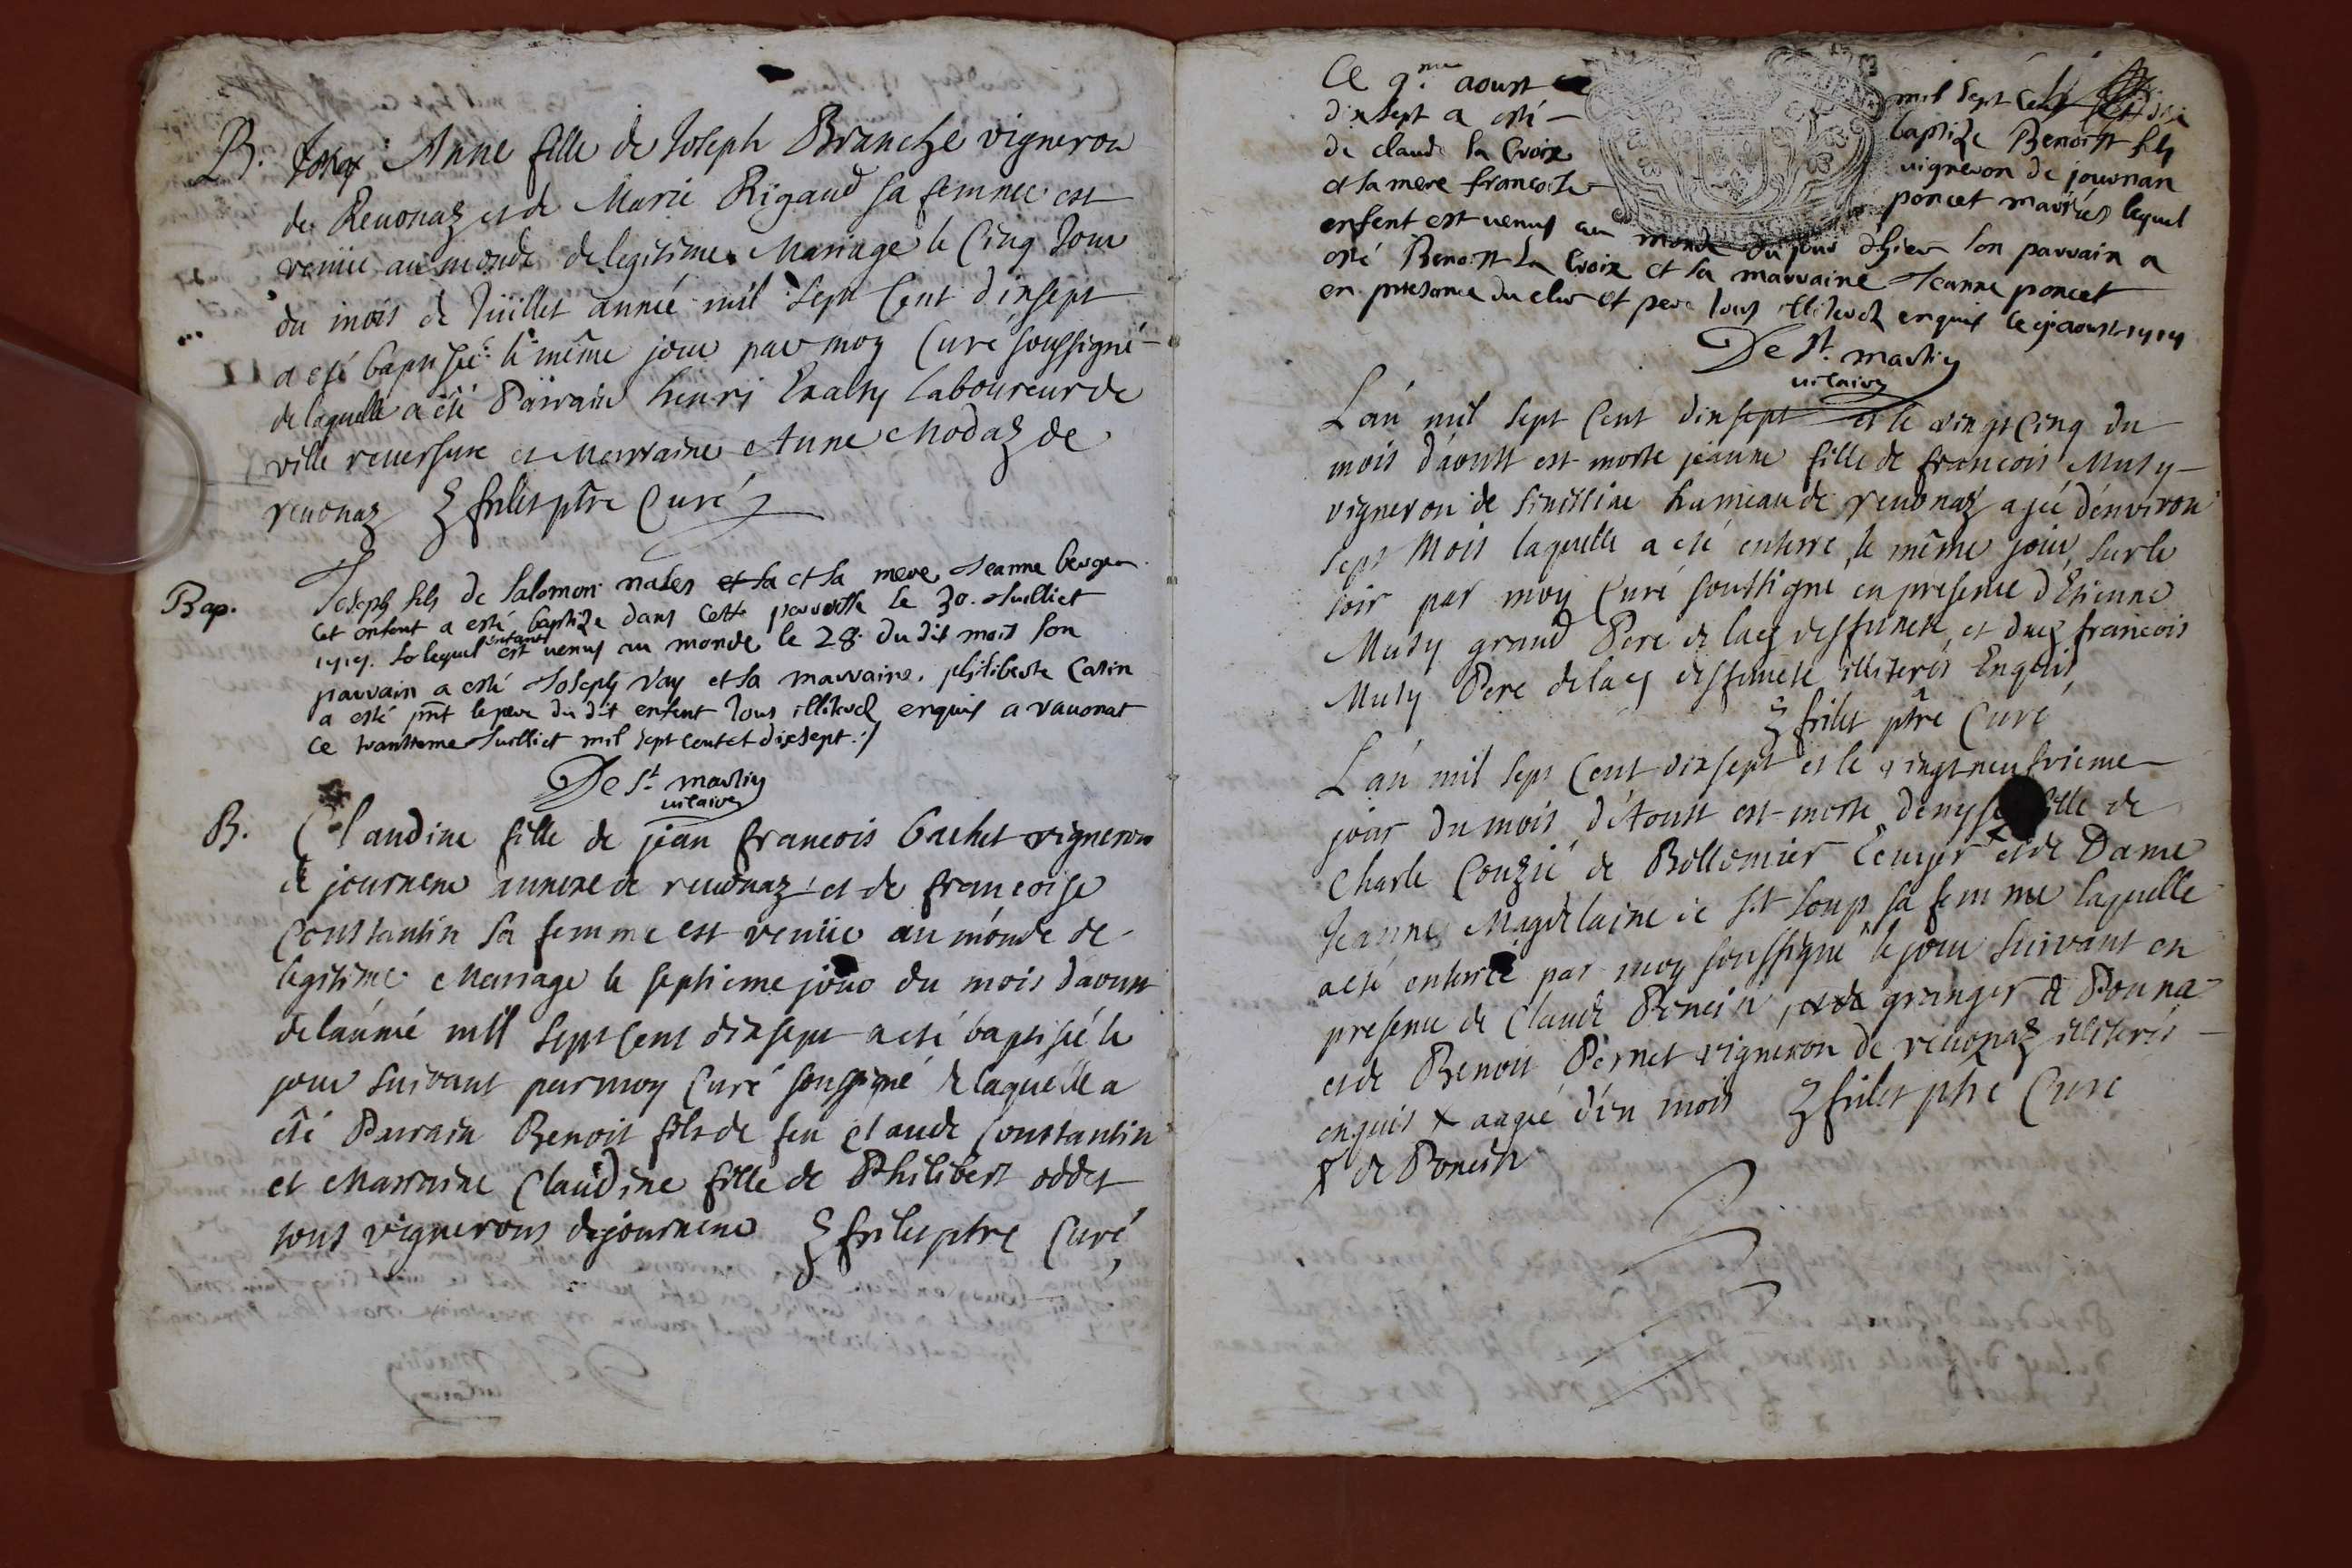 B. Anne fille de Joseph Branche vigneron
de Reuonaz et de Marie Rigaud sa femme est
venüe au monde de legitime Mariage le Cinq Jour
du mois de Jüillet année mil sept Cent dixsept
a esté baptisée le même jour par moy Curé soussigné
de laquelle a été Parrain henri laboureur de
ville reuersure et Marraine Anne Modaz de
reuonaz frilet ptre Curé
Bap. Joseph fils de Salomon nales et sa et sa mere Jeanne berger
Cet enfent a esté baptize dans Cette parroisse le 30. Juilliet
1717. Lequel enfant est venus au monde le 28. du dit mois son
parrain a esté Joseph Vay et sa marraine. philiberte Catin
a esté pnt le pere du dit enfent tous illiterés enquis a rauonat
Ce trantieme Juilliet mil sept cent et dixsept :/
De St. martin
uicaire
B. Claudine fille de jean francois Gachet vigneron
de journens annexe de reuonaz et de francoise
Constantin sa femme est venüe au monde de
legitime Mariage le septieme jour du mois daoust
de lannée mil sept Cent dixsept a esté baptisée le
jour suivant par moy Curé soussigné de laquelle a
été Parrain Benoit fils de feu Claude Constantin
et Marraine Claudine fille de Philibert oddet
tous vignerons de journens frilet ptre Curé
Ce 9.me aoust mil sept Cent
dixsept a esté baptize Benoist fils
de claude la Croix vigneron de journan
et sa mere francoise poncet mariés lequel
enfent est venus au monde du jour dhier son parrain a
esté Benoist la Croix et sa marraine Jeanne poncet
en presence du clerc et pere tous illiterés enquis le 9 aoust 1717
De St. martin
uicaire
Lan mil sept Cent dixsept et le vingt cinq du
mois d'aoust est morte jeanne fille de francois Musy
vigneron de hameau de reuonaz agée d'environ
sept Mois laquelle a esté enterré le même jour sur le
soir par moy Curé soussigné en presence d'Etienne
Musy grand Pere de lad. deffuncte et dud. francois
Musy Pere de lad. deffuncte illiterés Enquis
frilet ptre Curé
Lan mil sept Cent dixsept et le vingt neufvieme
jour du mois d'Aoust est morte denyse fille de
Charle Couzié de Bollomier Ecuyer et de Dame
Jeanne Magdelaine de St Loup sa femme laquelle
a esté enterré par moy soussigné le jour suivant en
presence de Claude granger
et de Benoit Pernet vigneron de reuonaz illiterés
enquis x aagée d'un mois frilet ptre Curé
x de Poncin